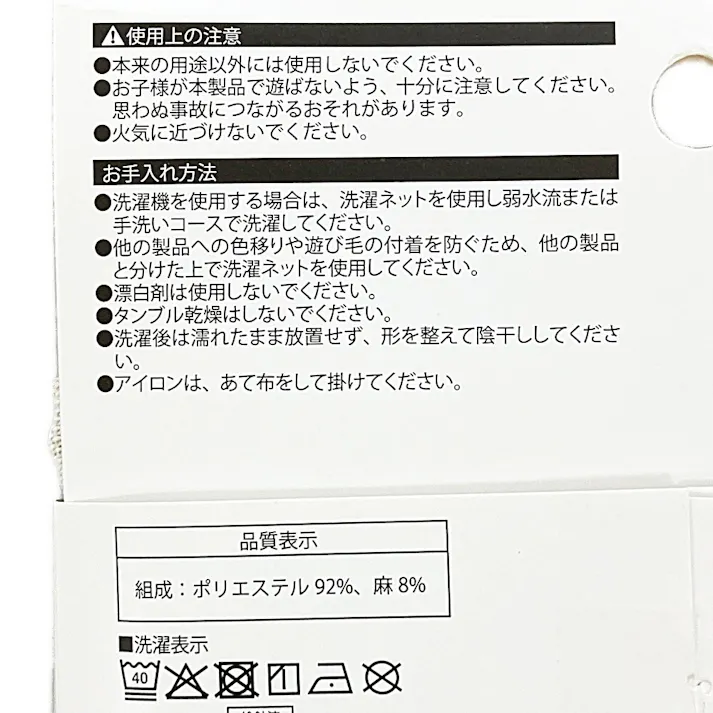 ⚠使用上の注意
●本来の用途以外には使用しないでください。
●お子様が本製品で遊ばないよう、十分に注意してください。
思わぬ事故につながるおそれがあります。
●火気に近づけないでください。
お手入れ方法
●洗濯機を使用する場合は、洗濯ネットを使用し弱水流または
手洗いコースで洗濯してください。
●他の製品への色移りや遊び毛の付着を防ぐため、他の製品
と分けた上で洗濯ネットを使用してください。
●漂白剤は使用しないでください。
●タンブル乾燥はしないでください。
●洗濯後は濡れたまま放置せず、形を整えて陰干ししてくださ
い。
●アイロンは、あて布をして掛けてください。
品質表示
組成：ポリエステル 92%、麻 8%
■洗濯表示
40